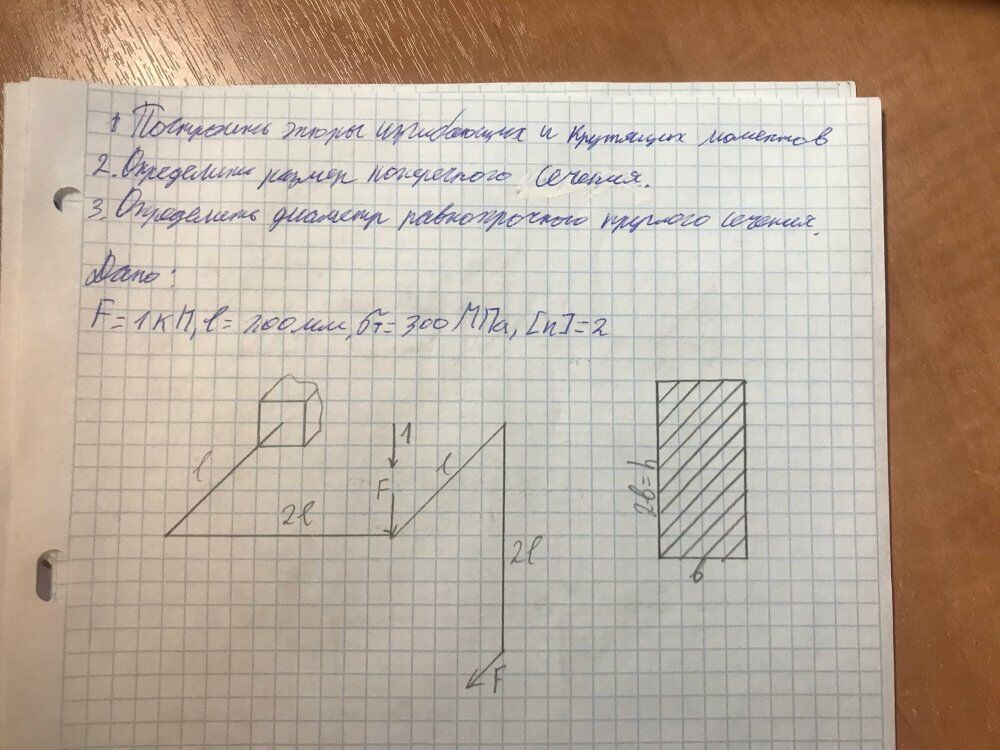 1 Построить эпюры изгибающих и крутящих моментов
2. Определить размер поперечного сечения.
3. Определить диаметр равнопрочного круглого сечения.
Дано:
F = 1 кН, l = 200 мм, σт = 300 МПа, [n] = 2
1
l
l
F
2l
2в = h
2l
в
F